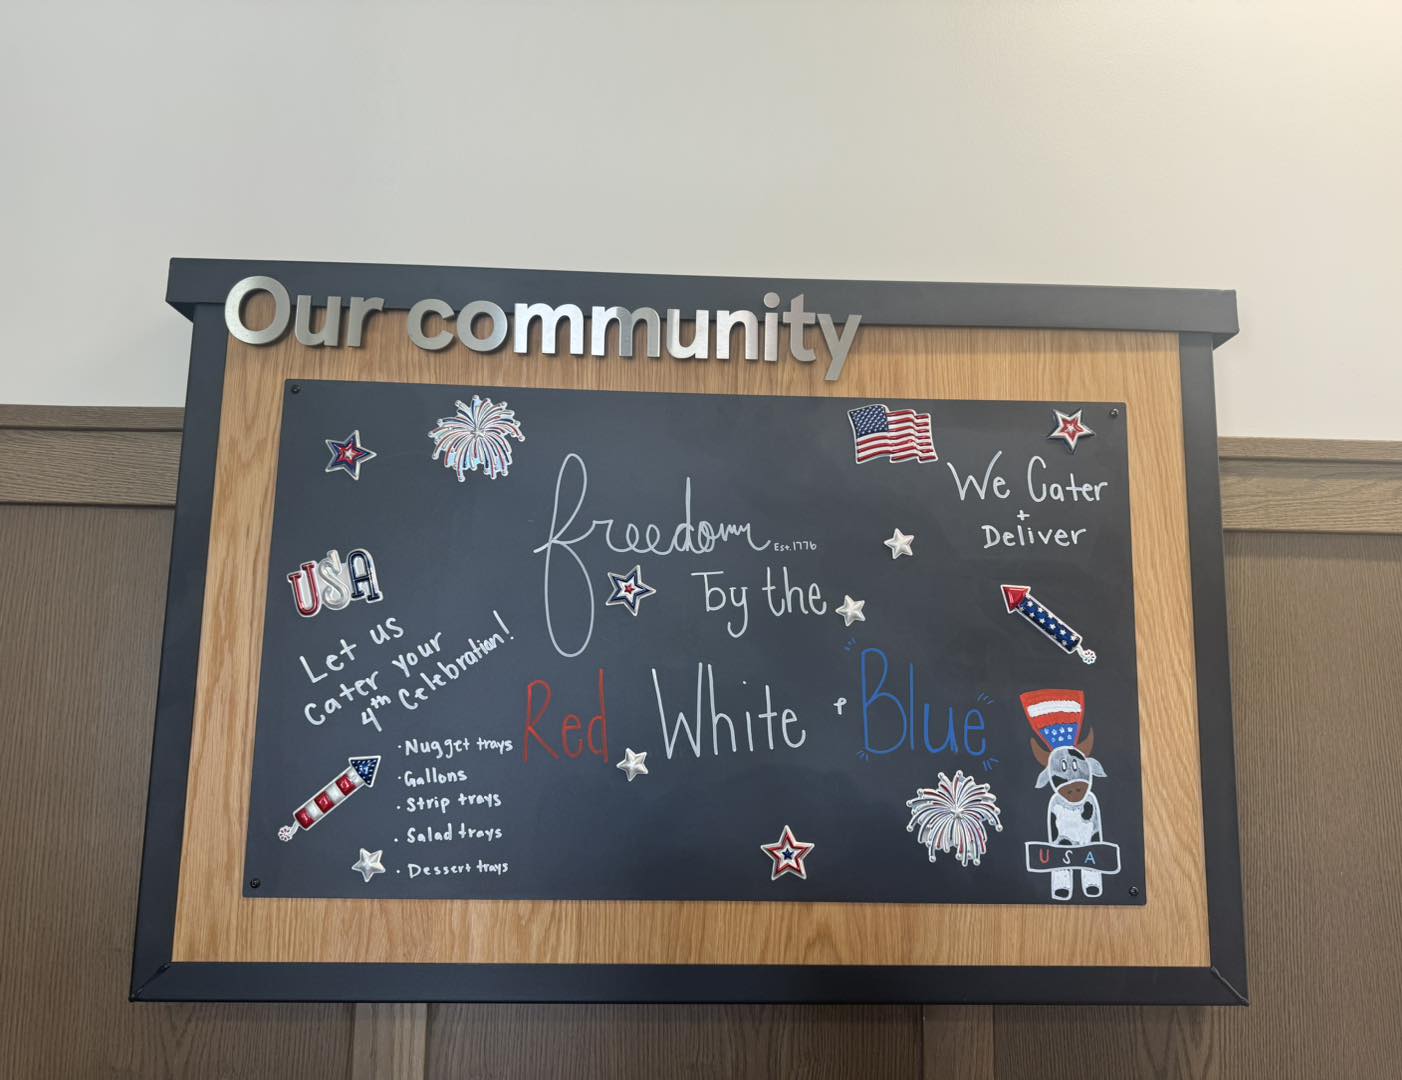 Our community
freedom
Est. 1776
by the
Red White + Blue
We Cater
+
Deliver
USA
Let us
cater your
4th Celebration!
· Nugget trays
· Gallons
· Strip trays
· Salad trays
· Dessert trays
USA